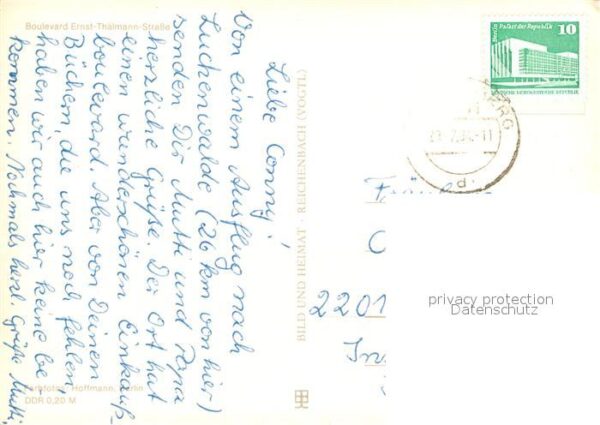 Boulevard Ernst-Thälmann-Straße
Liebe Conny!
Von einem Ausflug nach
Luckenwalde (26 km von hier)
senden Dir Mutti und Papa
herzliche Grüße. Der Ort hat
einen wunderschönen Einkaufs
boulevard. Aber von Deinen
Büchern, die uns noch fehlen,
haben wir auch hier keine be-
kommen. Nochmals herzl. Grüße Mutti.
Farbfoto: Hoffmann, Berlin
DDR 0,20 M
BILD UND HEIMAT · REICHENBACH (VOGTL)
Berlin Palast der Republik
10
DEUTSCHE DEMOKRATISCHE REPUBLIK
BERG
2201
privacy protection
Datenschutz